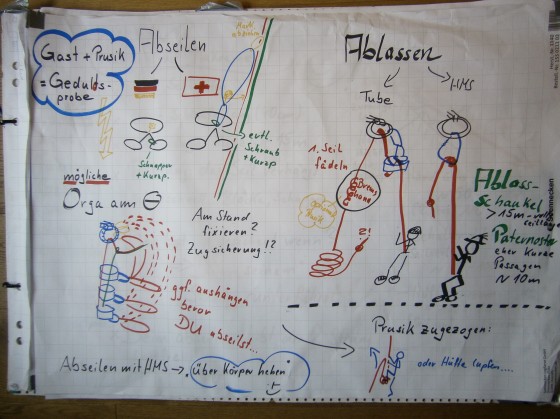 Gast + Prusik
= Gedulds-
probe
Abseilen
Schnapper
+ Kurzp.
evtl.
Schraub
+ Kurzp
mögliche
Orga am
Am Stand
fixieren?
Zugsicherung!?
ggf. aushängen
bevor
DU abseilst...
Abseilen mit HMS → "über Körper heben"
Ablassen
Tube
HMS
1. Seil
fädeln
2!
Ablass-
schaukel
> 15m
Paternoster
eher kurze
Passagen
~ 10m
Prusik zugezogen:
oder Hüfte lupfen....